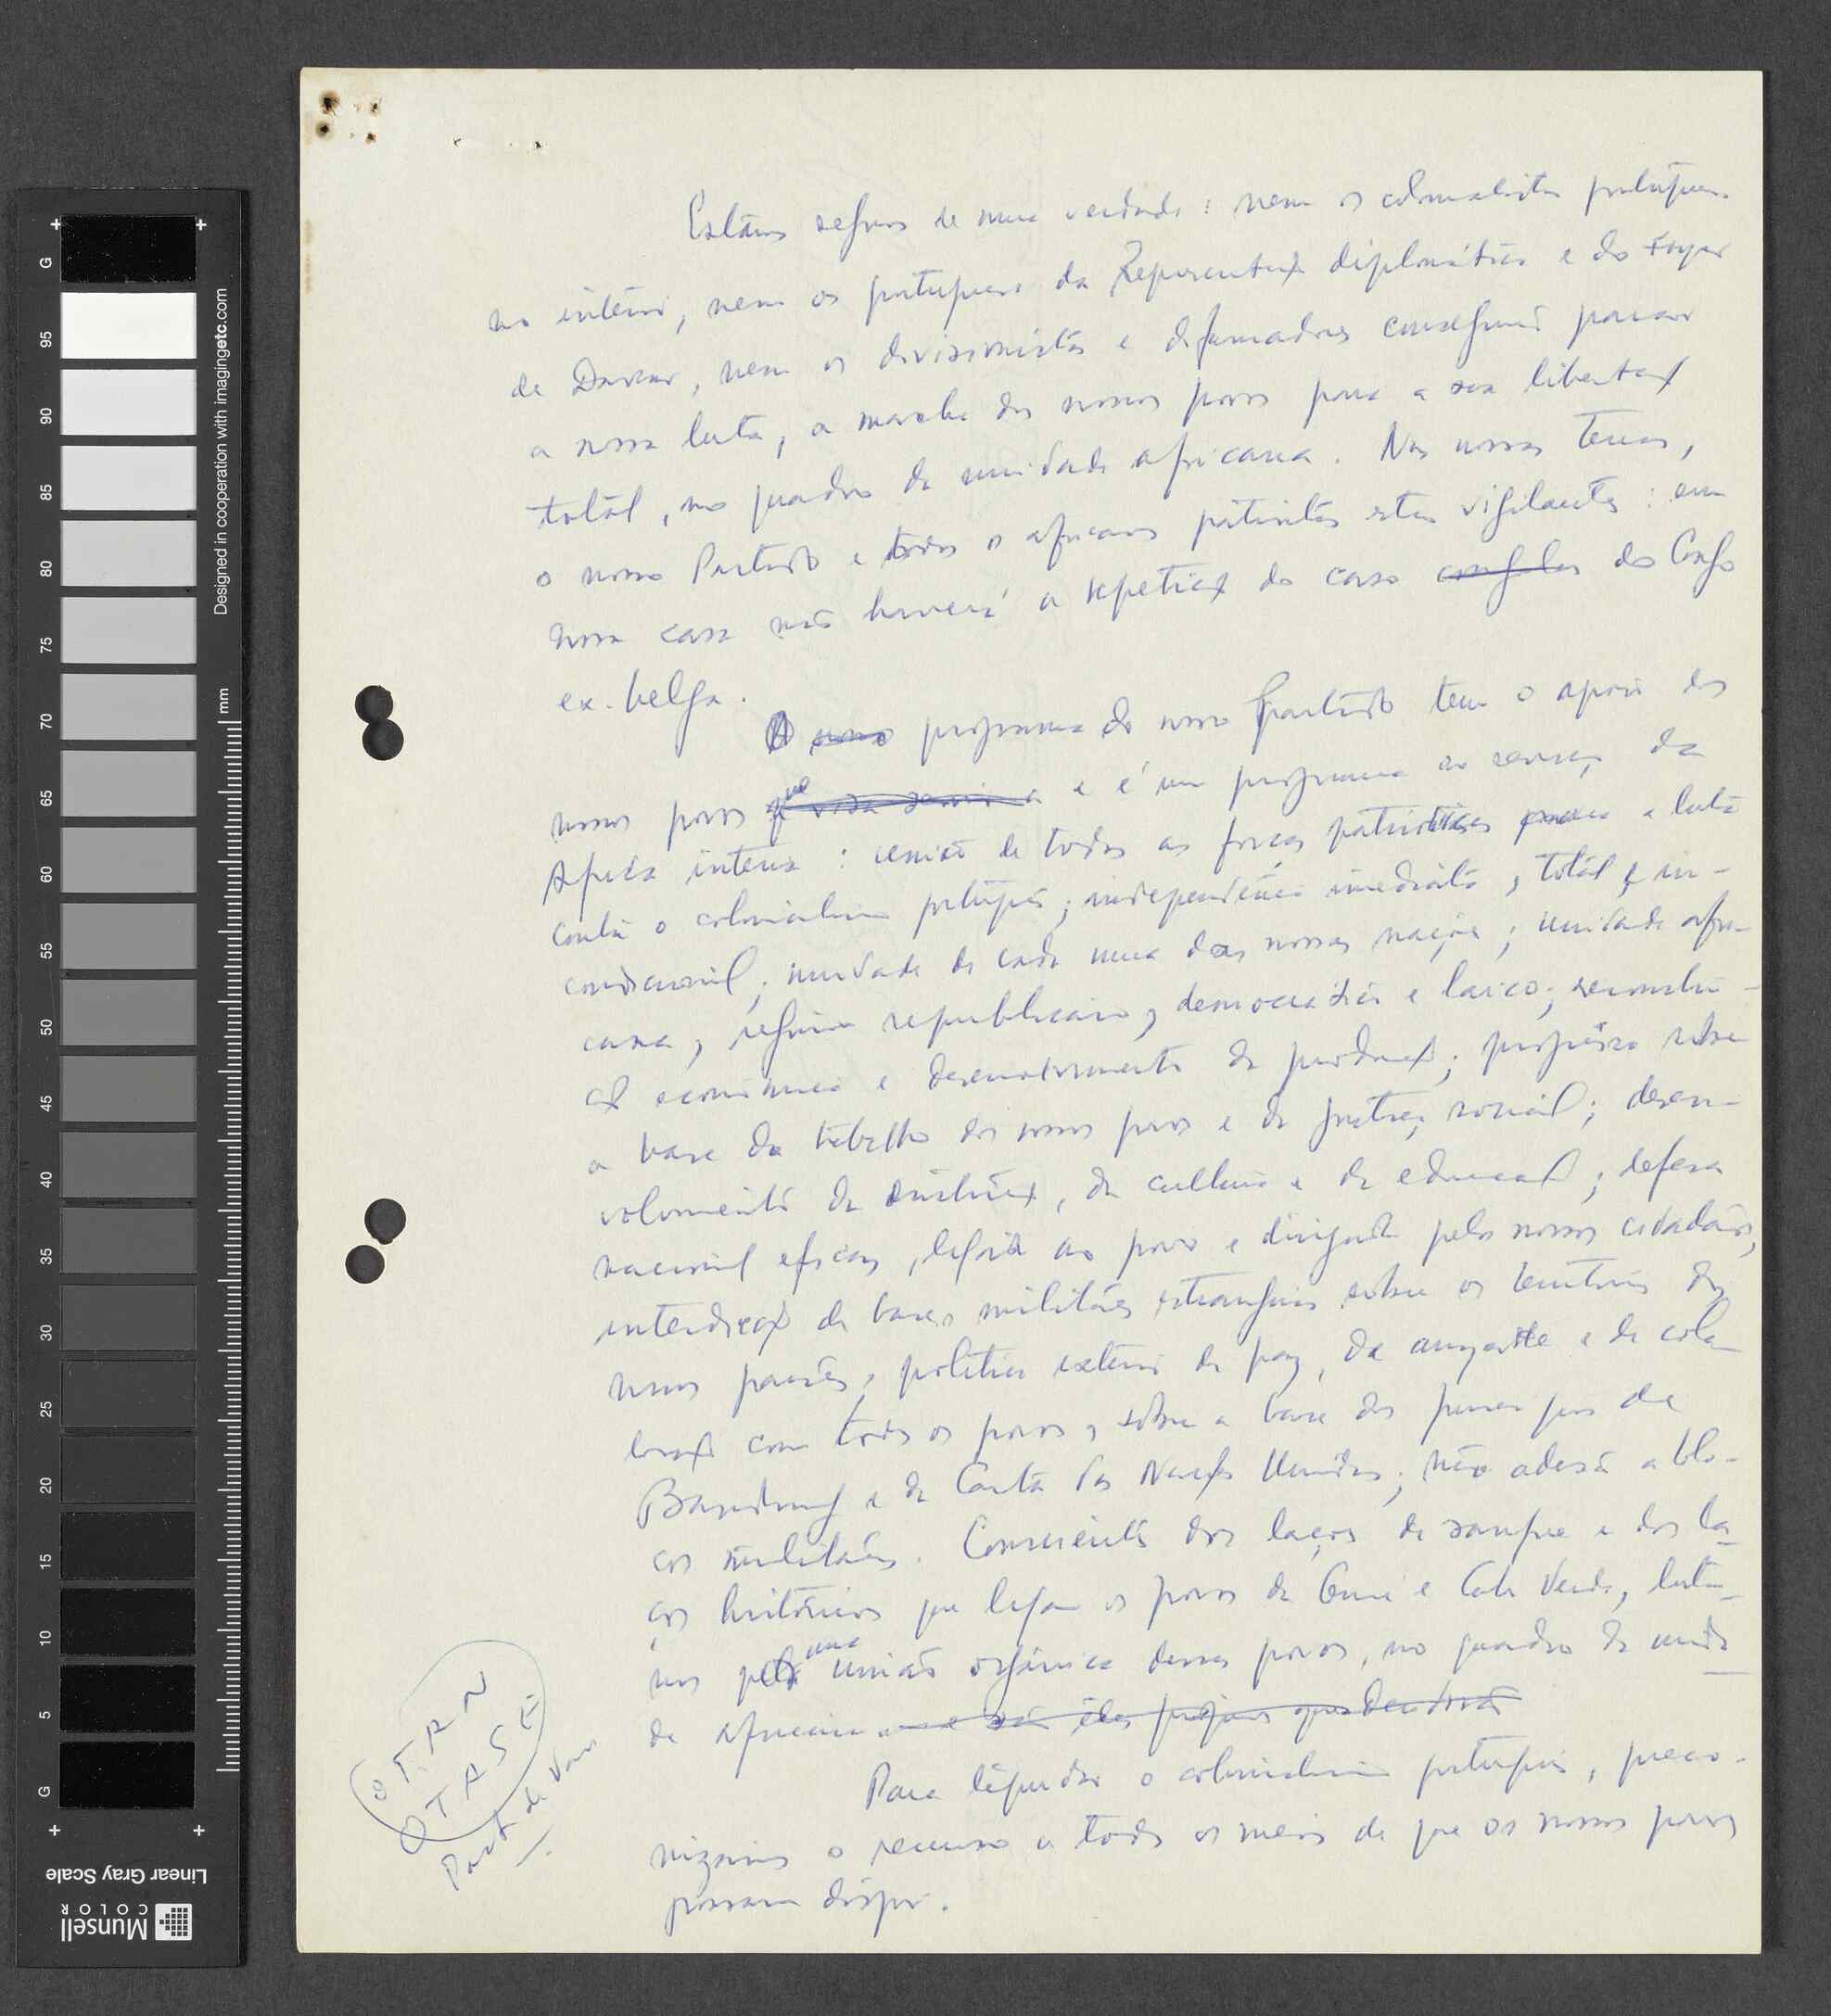 Estamos seguros de uma verdade: nem os colonialistas portugueses
no interior, nem os portugueses da Representação diplomática e do Foyer
de Dakar, nem os divisionistas e difamadores conseguirão parar
a nossa luta, a marcha dos nossos povos para a sua libertação
total, no quadro da unidade africana. Nas nossas terras,
o nosso Partido e todos os africanos patriotas estão vigilantes: em
nossa casa não haverá a repetição do caso congolês do Congo
ex-belga.
O nosso programa do nosso partido tem o apoio dos
nossos povos que e é um programa ao serviço da
África inteira: união de todas as forças patrióticas para a luta
contra o colonialismo português; independência imediata, total e in-
condicional; unidade de cada uma das nossas nações; unidade afri-
cana; regime republicano, democrático e laico; reconstru-
ção económica e desenvolvimento da produção; progresso sobre
a base do trabalho dos nossos povos e da justiça social; desen-
volvimento da instrução, da cultura e da educação; defesa
nacional eficaz, ligada ao povo e dirigida pelos nossos cidadãos,
interdição de bases militares estrangeiras sobre os territórios dos
nossos países; política externa de paz, de amizade e de cola-
boração com todos os povos, sobre a base dos princípios de
Bandung e da Carta das Nações Unidas; não adesão a blo-
cos militares. Conscientes dos laços de sangue e dos la-
ços históricos que ligam os povos da Guiné e Cabo Verde, luta-
mos pela uma união orgânica desses povos, no quadro da unida-
de africana são êles próprios que decidirão
Para liquidar o colonialismo português, preco-
nizamos o recurso a todos os meios de que os nossos povos
possam dispor.
OTAN
OTASE
Pact de Vars
Designed in cooperation with imagingetc.com
mm
G 95 90 85 80 75 70 65 60 55 50 45 40 35 30 25 20 15 10 5 G
Linear Gray Scale
Munsell
COLOR